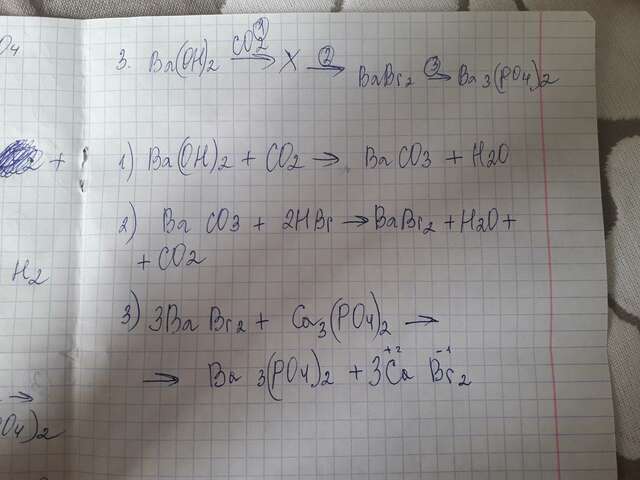 O4
3. Ba(OH)2 CO2 1→ X 2→ BaBr2 3→ Ba3(PO4)2
2 +
1) Ba(OH)2 + CO2 → BaCO3 + H2O
2) BaCO3 + 2HBr → BaBr2 + H2O +
+ CO2
H2
3) 3BaBr2 + Ca3(PO4)2 →
→ Ba3(PO4)2 + 3Ca+2Br2-1
→
O4)2